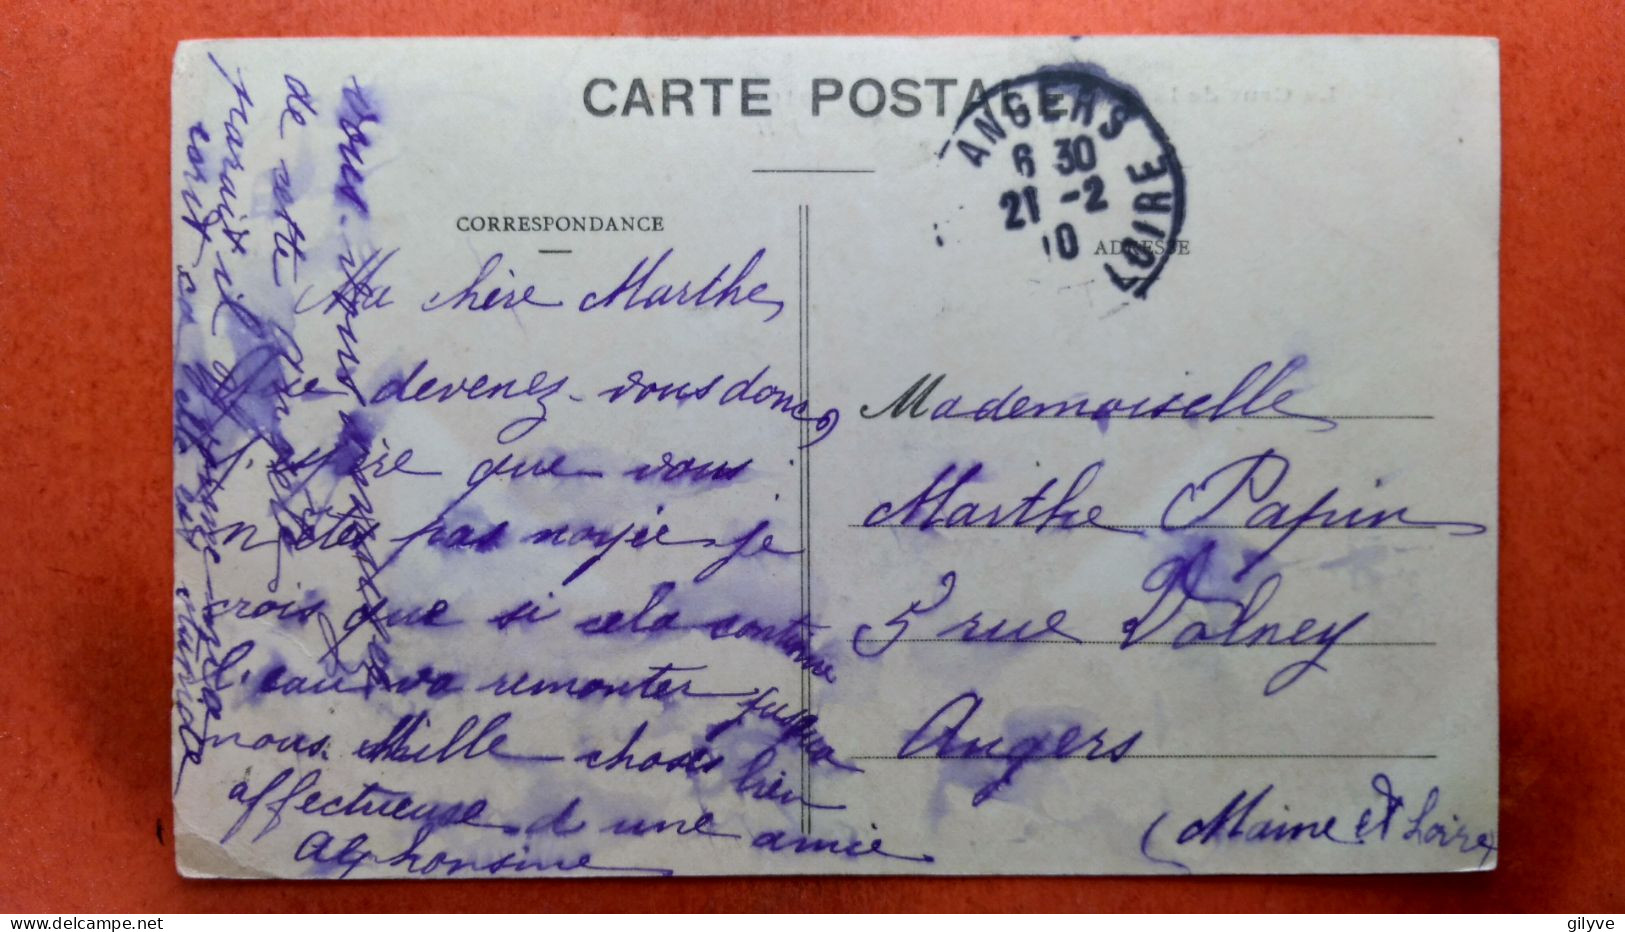 CARTE POSTALE
ANGERS
6 30
21 -2
10
LOIRE
CORRESPONDANCE
ADRESSE
Ma chère Marthe,
Que devenez-vous donc,
j'espère que vous
n'êtes pas noyée je
crois que si cela continue
l'eau va remonter jusqua
nous. Mille choses bien
affectueuse d'une amie
Alphonsine
Mademoiselle
Marthe Papin
5 rue Volney
Angers
(Maine et Loire)
vous. vous
de cette
parait-il
écrit
gilyve